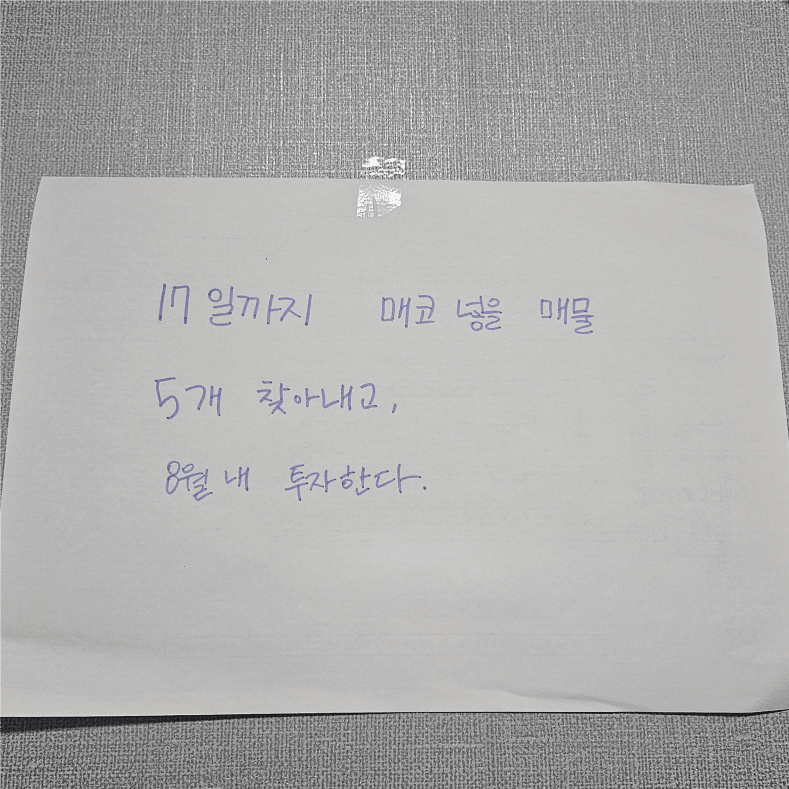 17일까지 매코 넣을 매물
5개 찾아내고,
8월 내 투자한다.